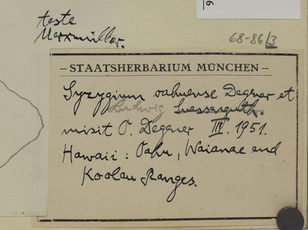 teste
Merxmüller.
68-86/3
– STAATSHERBARIUM MÜNCHEN –
Syzygium oahuense Degener et
Ludwig
misit O. Degener III. 1951.
Hawaii: Oahu, Waianae and
Koolau Ranges.